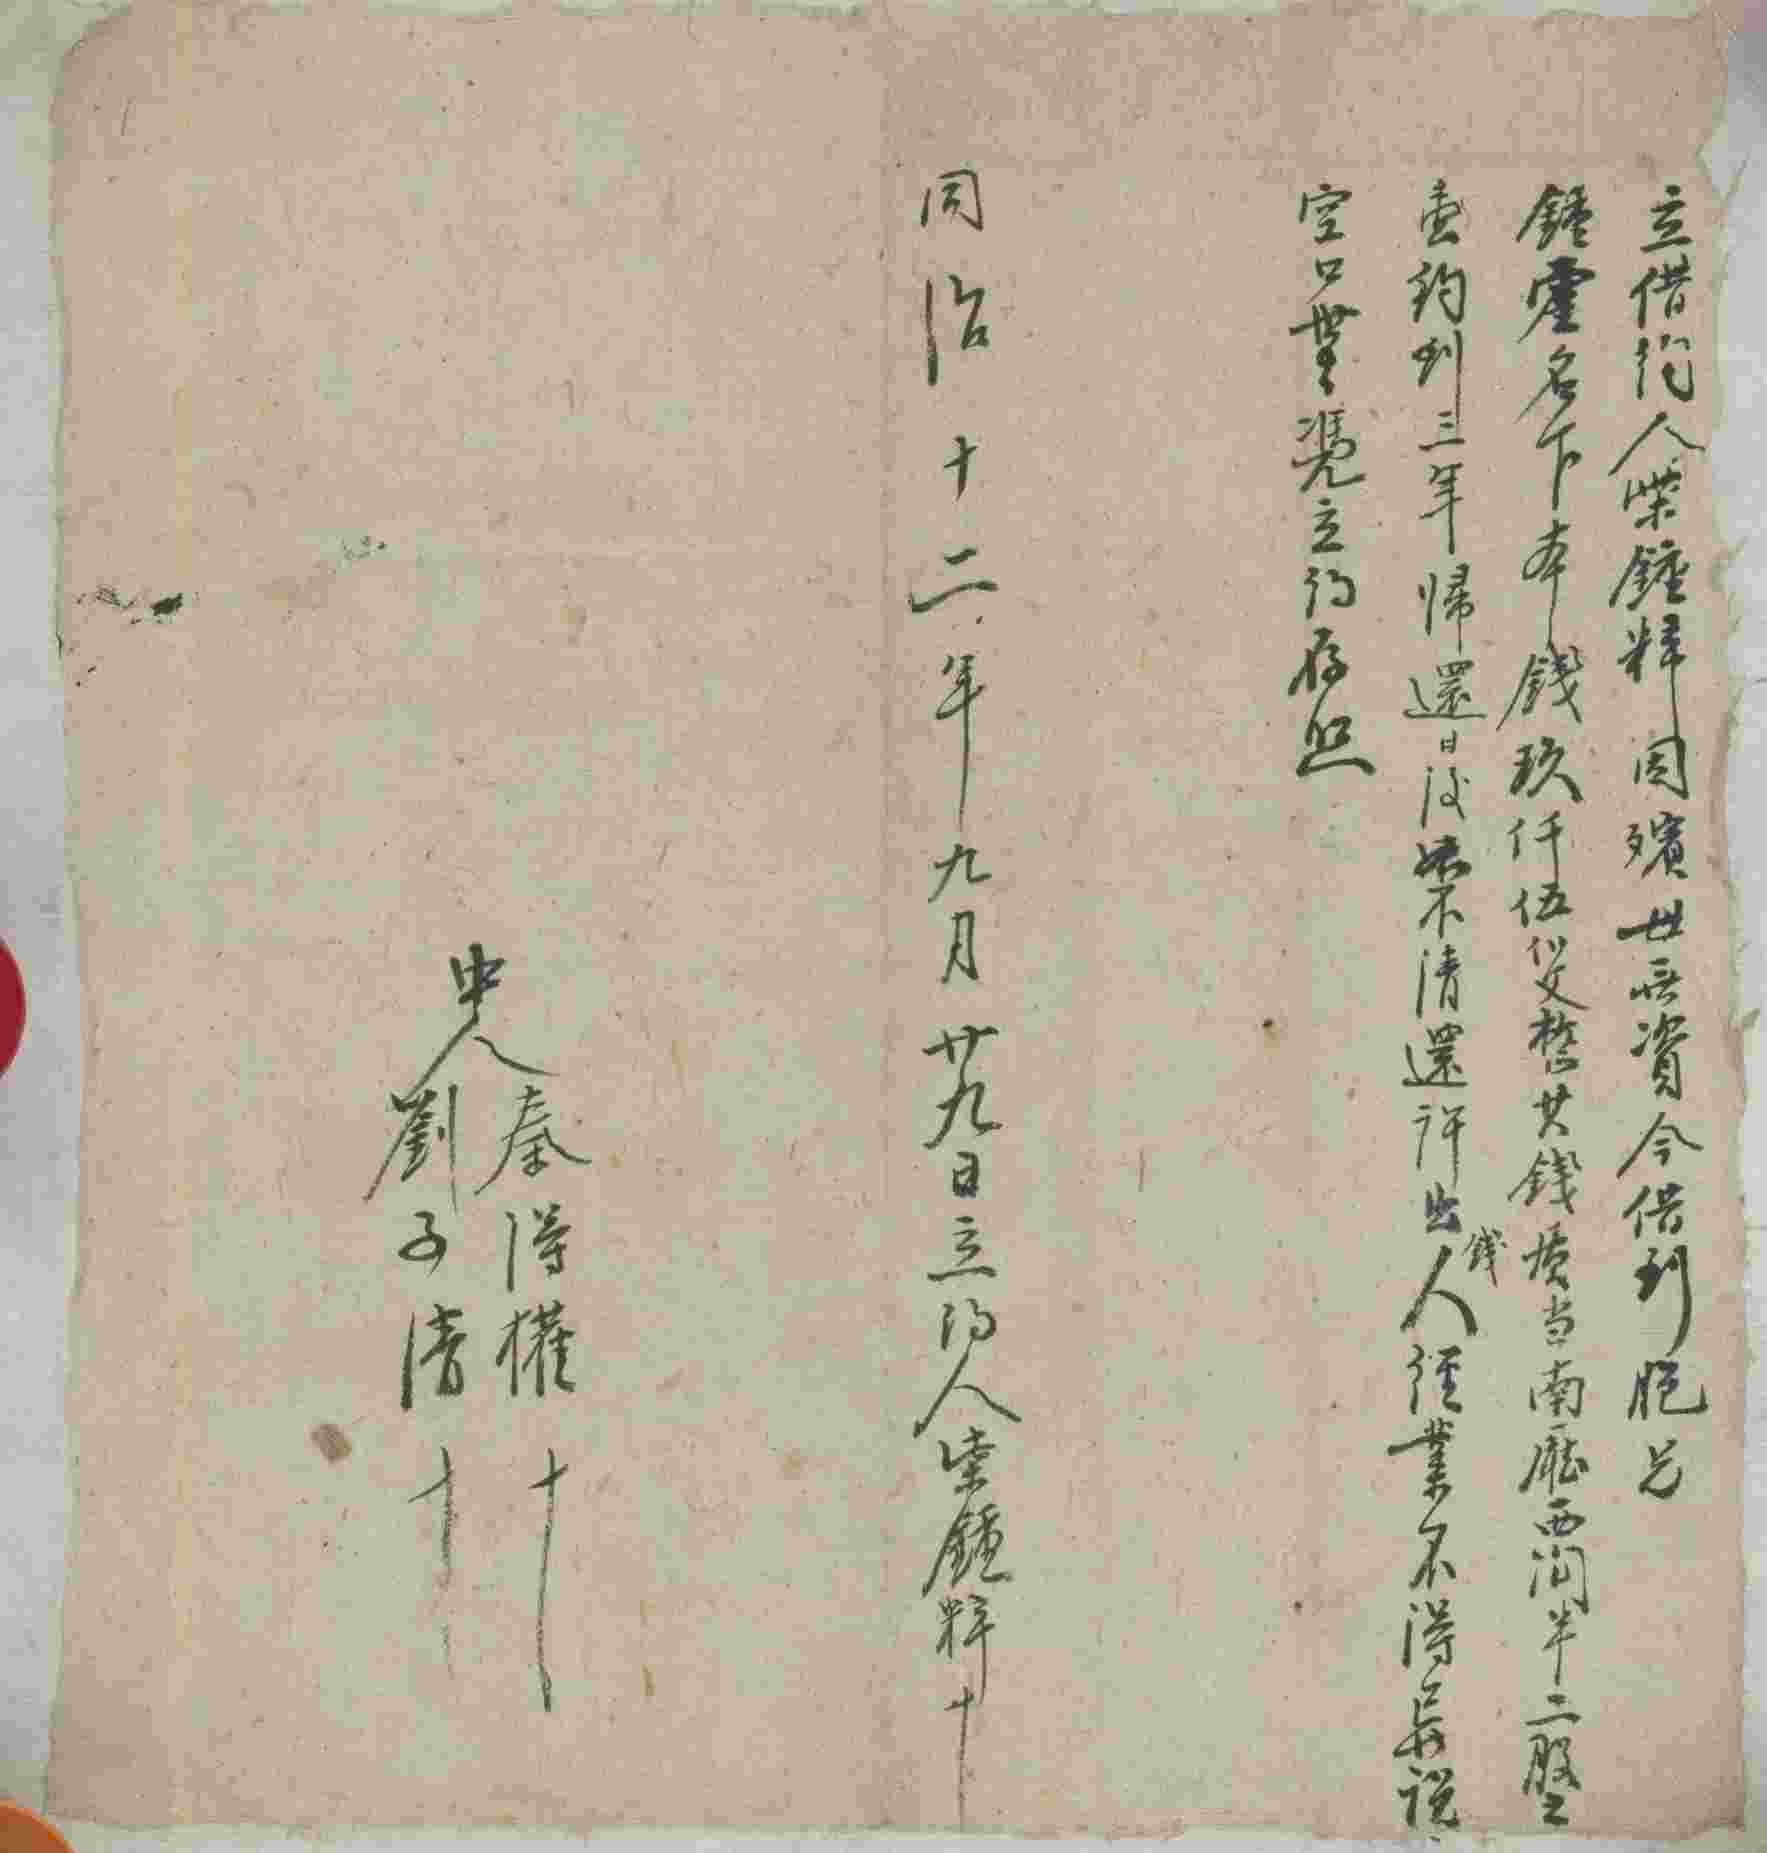 立借約人柴鐘粹因殯母無資今借到胞兄
鐘靈名下本錢玖仟伍伯文整其錢質当南廳西間半二股
壹約到三年歸還日後如不清還許出錢人經業不得異說
空口無憑立約存照
同治十二年九月廿九日立約人柴鐘粹十
中人
秦得權十
劉子清十